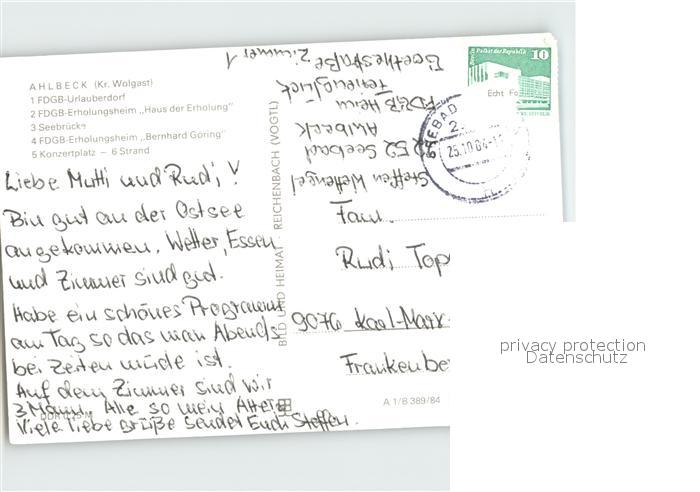 AHLBECK (Kr. Wolgast)
1 FDGB-Urlauberdorf
2 FDGB-Erholungsheim „Haus der Erholung"
3 Seebrücke
4 FDGB-Erholungsheim „Bernhard Göring"
5 Konzertplatz – 6 Strand
Liebe Mutti und Rudi, !
Bin gut an der Ostsee
angekommen, Wetter, Essen
und Zimmer sind gut.
Habe ein schönes Programm
am Tag so das man Abends
bei Zeiten müde ist.
Auf dem Zimmer sind wir
3 Mann, Alle so mein Alter.
Viele liebe Grüße sendet Euch Steffen.
BILD UND HEIMAT REICHENBACH (VOGTL)
Steffen Wettengel
2252 Seebad
Ahlbeck
FDGB Heim
Ferienglück
Goethestraße, Zimmer 1
Berlin Palast der Republik
10
Echt Fo
SEEBAD
2
25.10.84-1
Fam.
Rudi Top
9076 Karl-Marx-
Frankenbe
A 1/B 389/84
privacy protection
Datenschutz